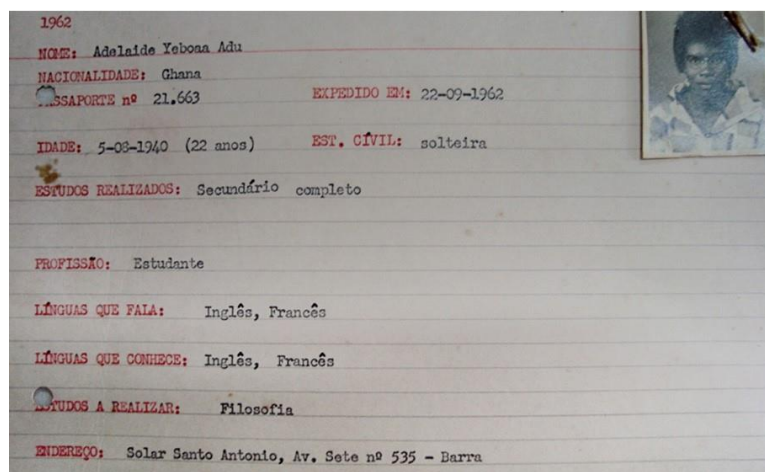 1962
NOME: Adelaide Yeboaa Adu
NACIONALIDADE: Ghana
SSAPORTE nº 21.663 EXPEDIDO EM: 22-09-1962
IDADE: 5-08-1940 (22 anos) EST. CÍVIL: solteira
ESTUDOS REALIZADOS: Secundário completo
PROFISSÃO: Estudante
LÍNGUAS QUE FALA: Inglês, Francês
LÍNGUAS QUE CONHECE: Inglês, Francês
TUDOS A REALIZAR: Filosofia
ENDEREÇO: Solar Santo Antonio, Av. Sete nº 535 - Barra